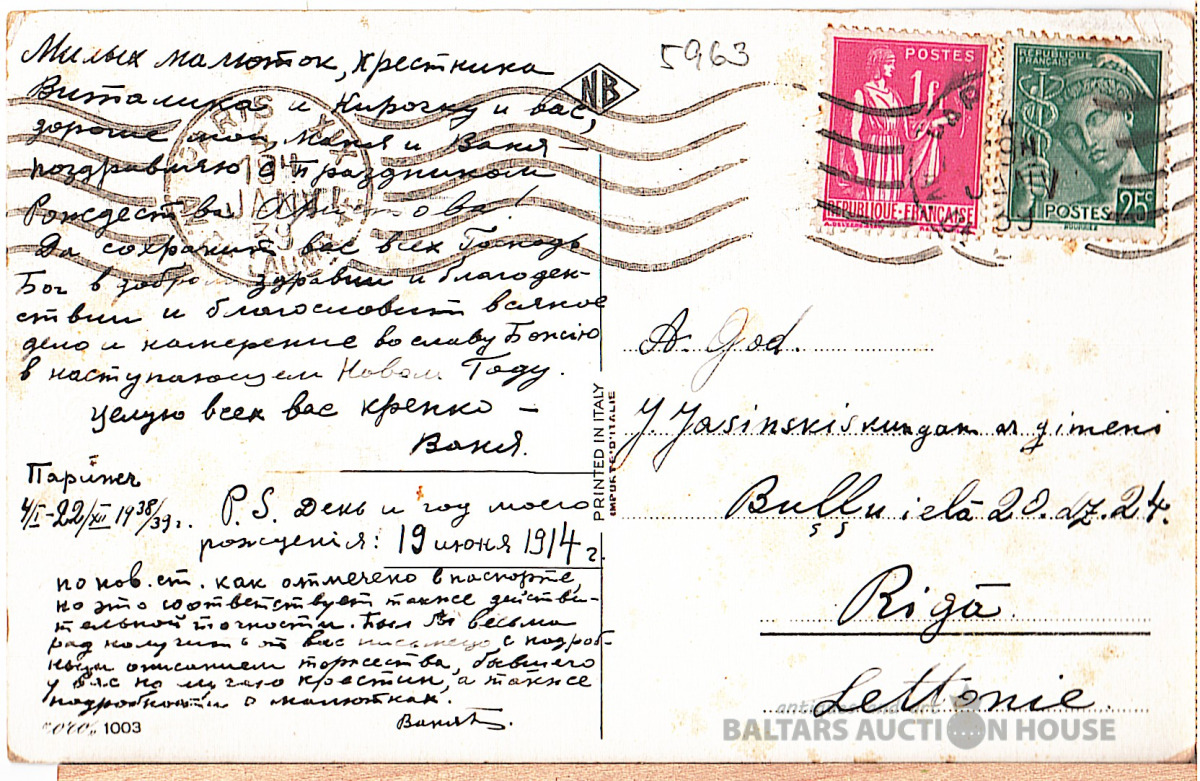 Милых малюток, крестника
Виталика и Кирочку и вас,
дорогие мои, Маня и Ваня –
поздравляю с Праздником
Рождества Христова!
Да сохранит вас всех Господь
Бог в добром здравии и благоден-
ствии и благословит всякое
дело и намерение во славу Божію
в наступающем Новом Году.
Целую всех вас крепко –
Ваня.
Париж
4/I-22/XII 1938/39 г.
P.S. День и год моего
рожденія: 19 июня 1914 г.
по нов. ст. как отмечено в паспорте,
но это соответствует также действи-
тельной точности. Был бы весьма
рад получить от вас письмецо с подроб-
ным описанием торжества, бывшего
у вас по случаю крестин, а также
подробности о малютках.
1003
5963
NB
PRINTED IN ITALY
IMPORTÉ D'ITALIE
POSTES
1F
REPUBLIQUE-FRANÇAISE
REPUBLIQUE
FRANÇAISE
POSTES 25c
PARIS
JANV
39
A. God.
J. Jasinskis kungam ar ģimeni
Buļļu ielā 20. dz. 24.
Rīgā.
Lettonie.
BALTARS AUCTION HOUSE